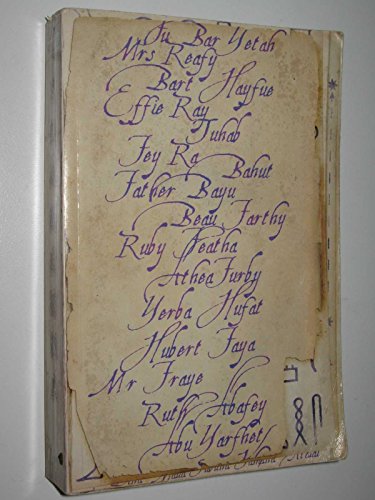 Ju Bar Yetah
Mrs Reafy
Bart Hayfue
Effie Ray
Juhab
Fey Ra Bahut
Father Bayu
Beau Farthy
Ruby Featha
Athea Furby
Yerba Hufat
Hubert Faya
Mr Fraye
Ruth Abafey
Abu Yarfhet